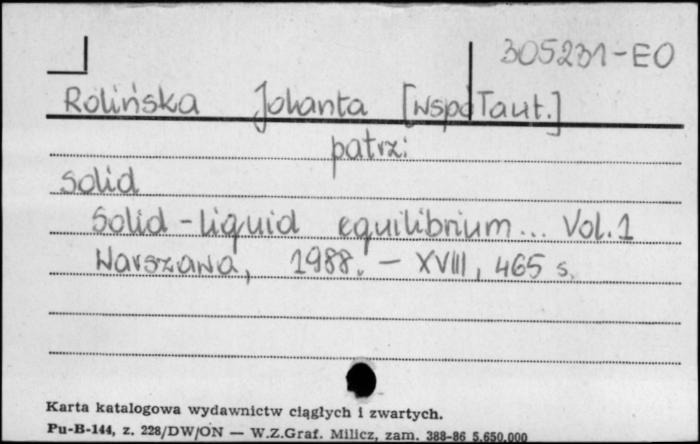 305231-EO
Rolińska Jolanta [współaut.]
patrz:
Solid
Solid-liquid equilibrium... Vol. 1
Warszawa, 1988. - XVIII, 465 s.
Karta katalogowa wydawnictw ciągłych i zwartych.
Pu-B-144, z. 228/DW/ON — W.Z.Graf. Milicz, zam. 388-86 5.650.000